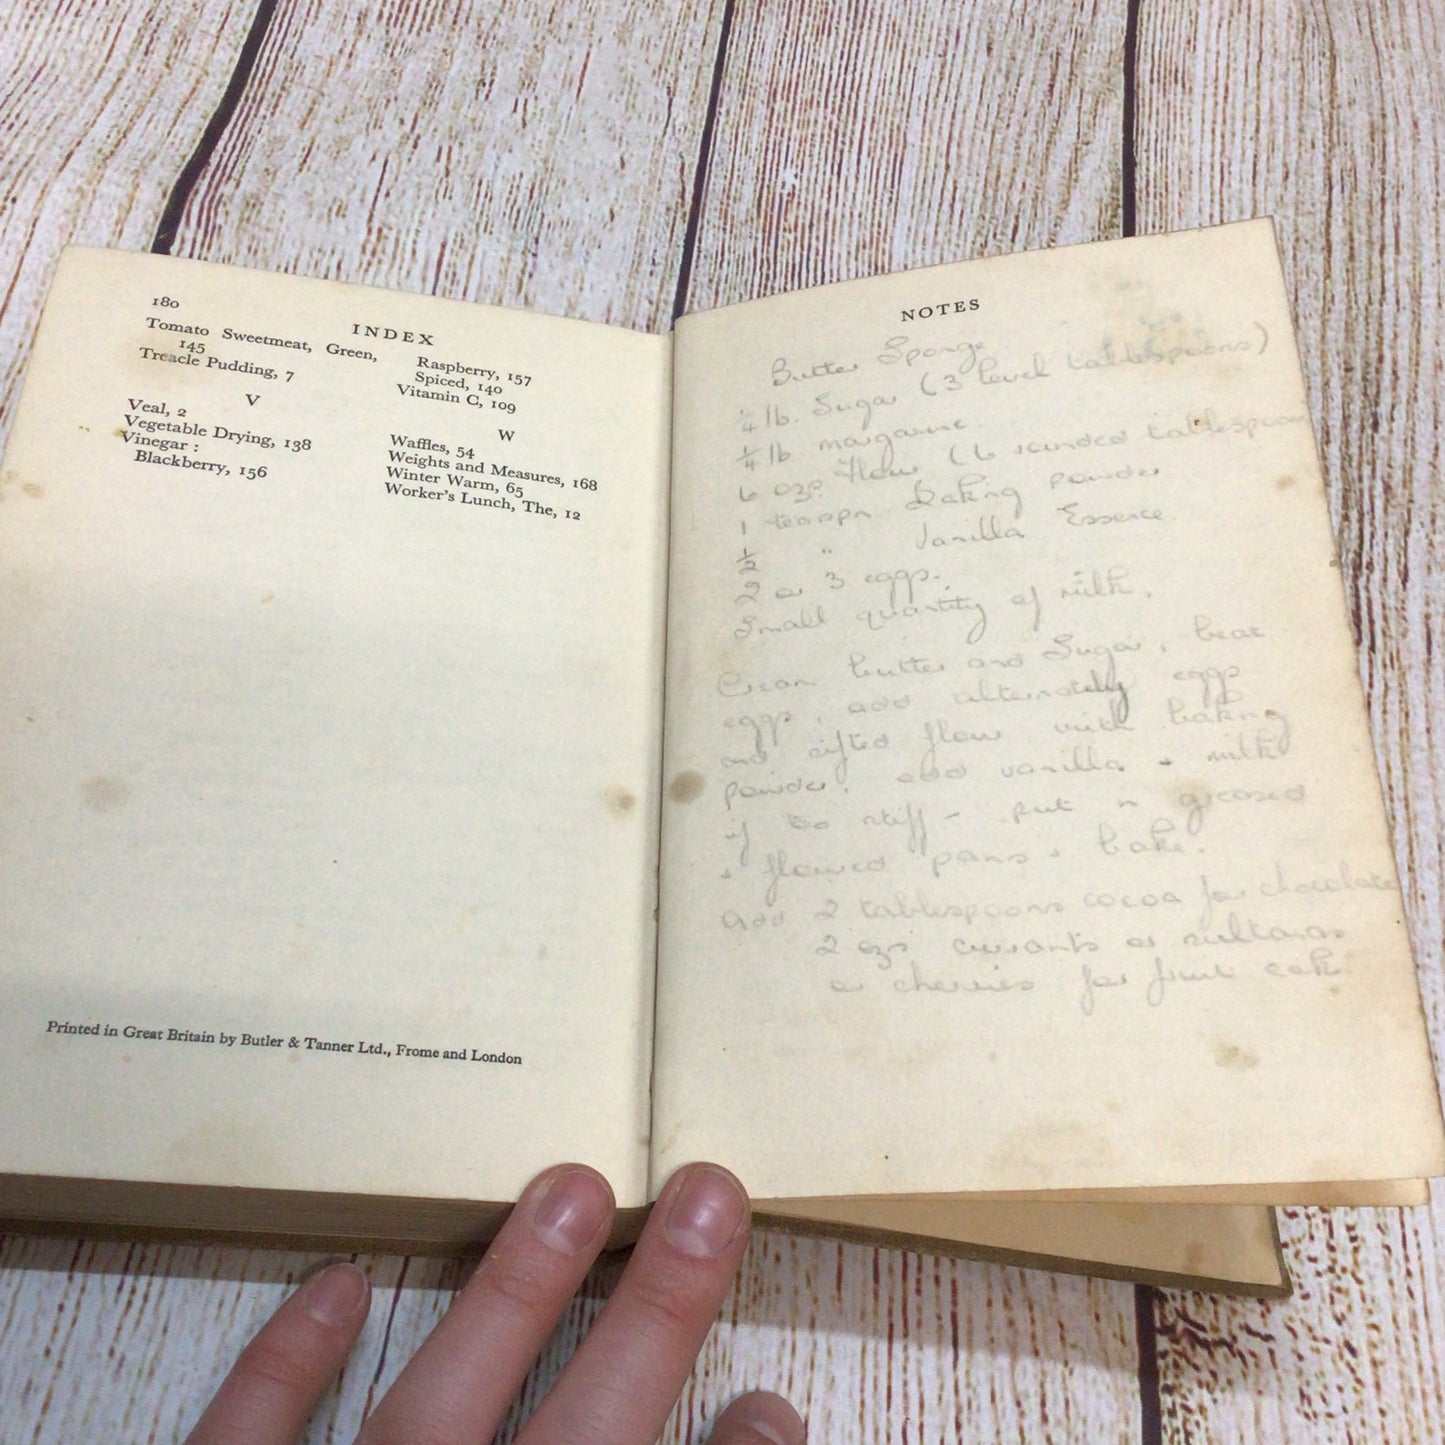 180
INDEX
Tomato Sweetmeat, Green,
145
Treacle Pudding, 7
V
Veal, 2
Vegetable Drying, 138
Vinegar :
Blackberry, 156
Raspberry, 157
Spiced, 140
Vitamin C, 109
W
Waffles, 54
Weights and Measures, 168
Winter Warm, 65
Worker's Lunch, The, 12
Printed in Great Britain by Butler & Tanner Ltd., Frome and London
NOTES
Butter Sponge
¼ lb. Sugar (3 level tablespoons)
¼ lb margarine.
6 ozs. flour (6 rounded tablespoon
1 teaspn Baking powder
½ " Vanilla Essence.
2 or 3 eggs.
Small quantity of milk.
Cream butter and Sugar, beat
eggs, add alternately eggs
and sifted flour with baking
powder, add vanilla & milk
if too stiff - put in greased
& floured pans & bake.
Add 2 tablespoons cocoa for chocolate
2 ozs currants or sultanas
or cherries for fruit cake